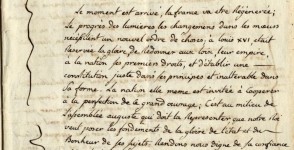 Le moment est arrivé, la france va être Régénérée;
Le progrès des lumières les changemens dans les mœurs
nécessitent un nouvel ordre de choses; à louis XVI etait
réservée la gloire, de Redonner aux loix leur empire
a la nation ses premiers droits, et d'établir une
constitution juste dans ses principes et inalterable dans
sa forme. La nation elle meme est invitée a Coopérer
a la perfection de ce grand ouvrage; C'est au milieu de
l'assemblée auguste qui doit la Representer que notre Roi
veut poser les fondements de la gloire de l'état et du
Bonheur de ses sujets. Rendons nous digne de sa confiance